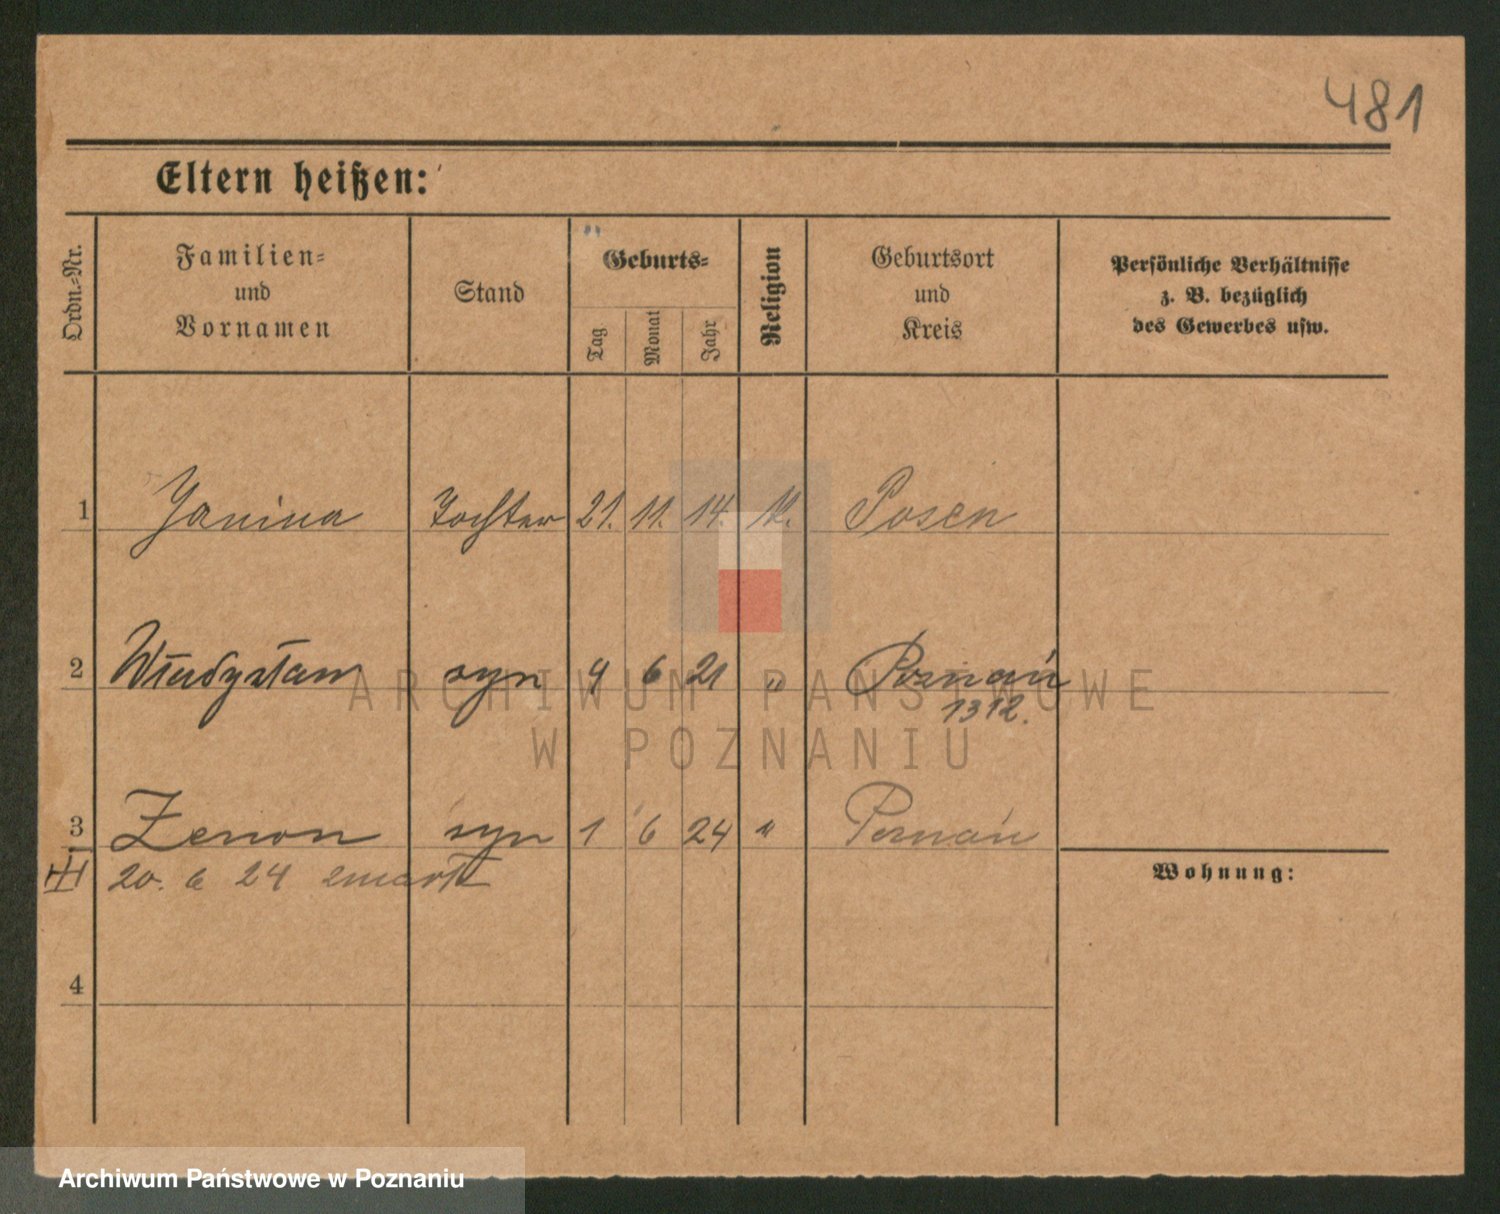 481
Eltern heißen:
Ordn.-Nr.
Familien-
und
Vornamen
Stand
Geburts-
Tag
Monat
Jahr
Religion
Geburtsort
und
Kreis
Persönliche Verhältnisse
z. B. bezüglich
des Gewerbes usw.
1 Janina Tochter 21. 11. 14. Posen
2 Władysław syn 9 6 21 " Poznań
1312.
3 Zenon syn 1 6 24 " Poznań
20. 6 24 zmarł
Wohnung:
4
ARCHIWUM PAŃSTWOWE
W POZNANIU
Archiwum Państwowe w Poznaniu